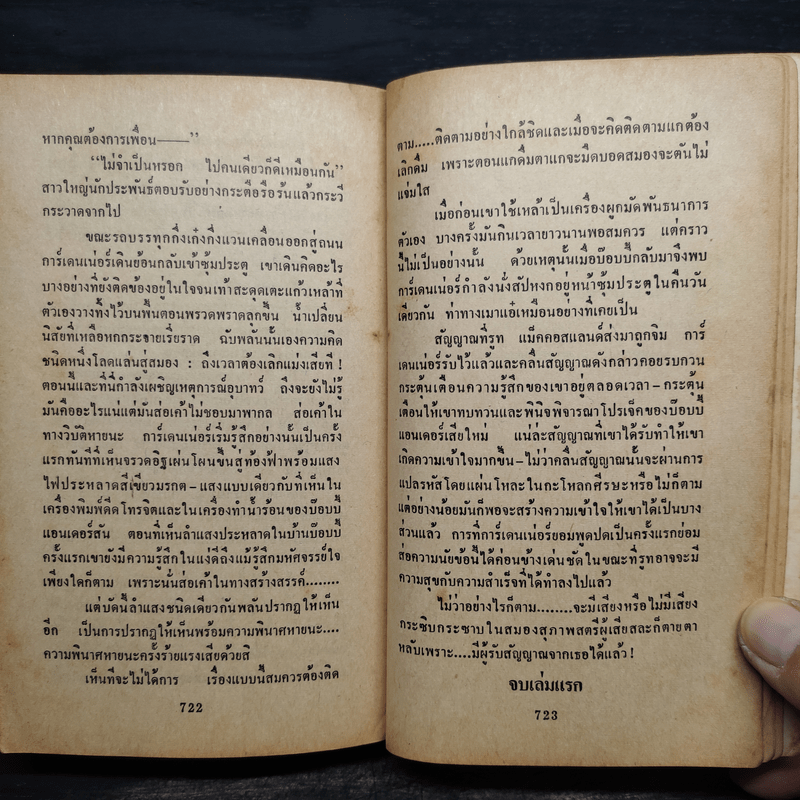 หากคุณต้องการเพื่อน——"
"ไม่จำเป็นหรอก ไปคนเดียวก็ดีเหมือนกัน"
สาวใหญ่นักประพันธ์ตอบรับอย่างกระตือรือร้นแล้วกระวี
กระวาดจากไป
ขณะรถบรรทุกกึ่งเก๋งกึ่งแวนเคลื่อนออกสู่ถนน
การ์เดนเน่อร์เดินย้อนกลับเข้าซุ้มประตู เขาเดินคิดอะไร
บางอย่างที่ยังติดข้องอยู่ในใจจนเท้าสะดุดเตะแก้วเหล้าที่
ตัวเองวางทิ้งไว้บนพื้นตอนพรวดพราดลุกขึ้น น้ำเปลี่ยน
นิสัยที่เหลือหกกระจายเรี่ยราด ฉับพลันนั้นเองความคิด
ชนิดหนึ่งโลดแล่นสู่สมอง : ถึงเวลาต้องเลิกแม่งเสียที !
ตอนนี้และที่นี่กำลังเผชิญเหตุการณ์อุบาทว์ ถึงจะยังไม่รู้
มันคืออะไรแน่แต่มันส่อเค้าไม่ชอบมาพากล ส่อเค้าใน
ทางวิบัติหายนะ การ์เดนเน่อร์เริ่มรู้สึกอย่างนั้นเป็นครั้ง
แรกทันทีที่เห็นจรวดอิฐเผ่นโผนขึ้นสู่ท้องฟ้าพร้อมแสง
ไฟประหลาดสีเขียวมรกต–แสงแบบเดียวกับที่เห็นใน
เครื่องพิมพ์ดีดโทรจิตและในเครื่องทำน้ำร้อนของบ๊อบบี้
แอนเดอร์สัน ตอนที่เห็นลำแสงประหลาดในบ้านบ๊อบบี้
ครั้งแรกเขายังมีความรู้สึกในแง่ดีถึงแม้รู้สึกมหัศจรรย์ใจ
เพียงใดก็ตาม เพราะนั่นส่อเค้าในทางสร้างสรรค์........
แต่บัดนี้ลำแสงชนิดเดียวกันพลันปรากฏให้เห็น
อีก เป็นการปรากฏให้เห็นพร้อมความพินาศหายนะ....
ความพินาศหายนะครั้งร้ายแรงเสียด้วยสิ
เห็นทีจะไม่ได้การ เรื่องแบบนี้สมควรต้องติด
722
ตาม.....ติดตามอย่างใกล้ชิดและเมื่อจะคิดติดตามแกต้อง
เลิกดื่ม เพราะตอนแกดื่มตาแกจะมืดบอดสมองจะตันไม่
แจ่มใส
เมื่อก่อนเขาใช้เหล้าเป็นเครื่องผูกมัดพันธนาการ
ตัวเอง บางครั้งมันกินเวลายาวนานพอสมควร แต่คราว
นี้ไม่เป็นอย่างนั้น ด้วยเหตุนั้นเมื่อบ๊อบบี้กลับมาจึงพบ
การ์เดนเน่อร์กำลังนั่งสัปหงกอยู่หน้าซุ้มประตูในคืนวัน
เดียวกัน ท่าทางเมาแอ๋เหมือนอย่างที่เคยเป็น
สัญญาณที่รูท แม็คคอสแลนด์ส่งมาถูกจิม การ์
เดนเน่อร์รับไว้แล้วและคลื่นสัญญาณดังกล่าวคอยรบกวน
กระตุ้นเตือนความรู้สึกของเขาอยู่ตลอดเวลา–กระตุ้น
เตือนให้เขาทบทวนและพินิจพิจารณาโปรเจ็คของบ๊อบบี้
แอนเดอร์เสียใหม่ แน่ล่ะสัญญาณที่เขาได้รับทำให้เขา
เกิดความเข้าใจมากขึ้น–ไม่ว่าคลื่นสัญญาณนั้นจะผ่านการ
แปลรหัสโดยแผ่นโหละในกะโหลกศีรษะหรือไม่ก็ตาม
แต่อย่างน้อยมันก็พอจะสร้างความเข้าใจให้เขาได้เป็นบาง
ส่วนแล้ว การที่การ์เดนเน่อร์ยอมพูดปดเป็นครั้งแรกย่อม
ส่อความนัยข้อนี้ได้ค่อนข้างเด่นชัดในขณะที่รูทอาจจะมี
ความสุขกับความสำเร็จที่ได้ทำลงไปแล้ว
ไม่ว่าอย่างไรก็ตาม........จะมีเสียงหรือไม่มีเสียง
กระซิบกระซาบในสมองสุภาพสตรีผู้เสียสละก็ตายตา
หลับเพราะ....มีผู้รับสัญญาณจากเธอได้แล้ว !
จบเล่มแรก
723